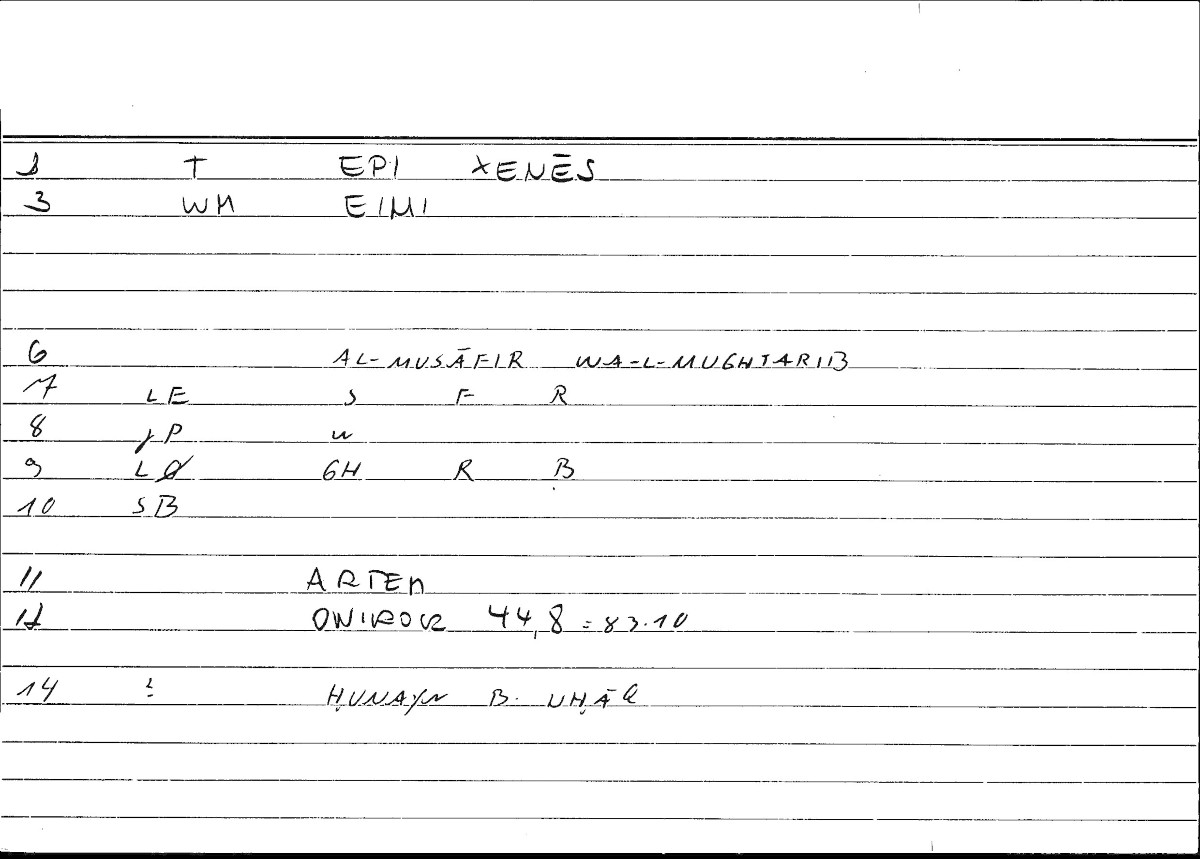 1 T EPI XENĒS
3 WH EIMI
6 AL-MUSĀFIR WA-L-MUGHTARIIB
7 LE S F R
8 P w
9 LØ GH R B
10 SB
11 ARTEM
12 ONIROCR 44,8 = 83.10
14 : ḤUNAYN B. ISḤĀQ